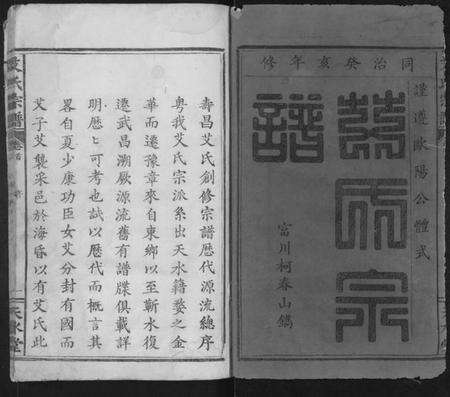 同治癸亥年修
謹遵歐陽公體式
艾氏宗
譜
富川柯春山鐫
壽昌艾氏創修宗譜歷代源流總序
粵我艾氏宗派系出天水籍婺之金
華而遷豫章來自東鄉以至蘄水復
遷武昌溯厥源流舊有譜牒俱載詳
明歷七可考也試以歷代而概言其
畧自夏少康功臣女艾分封有國而
艾子艾襲采邑於海昏以有艾氏此
艾氏宗譜
天水堂